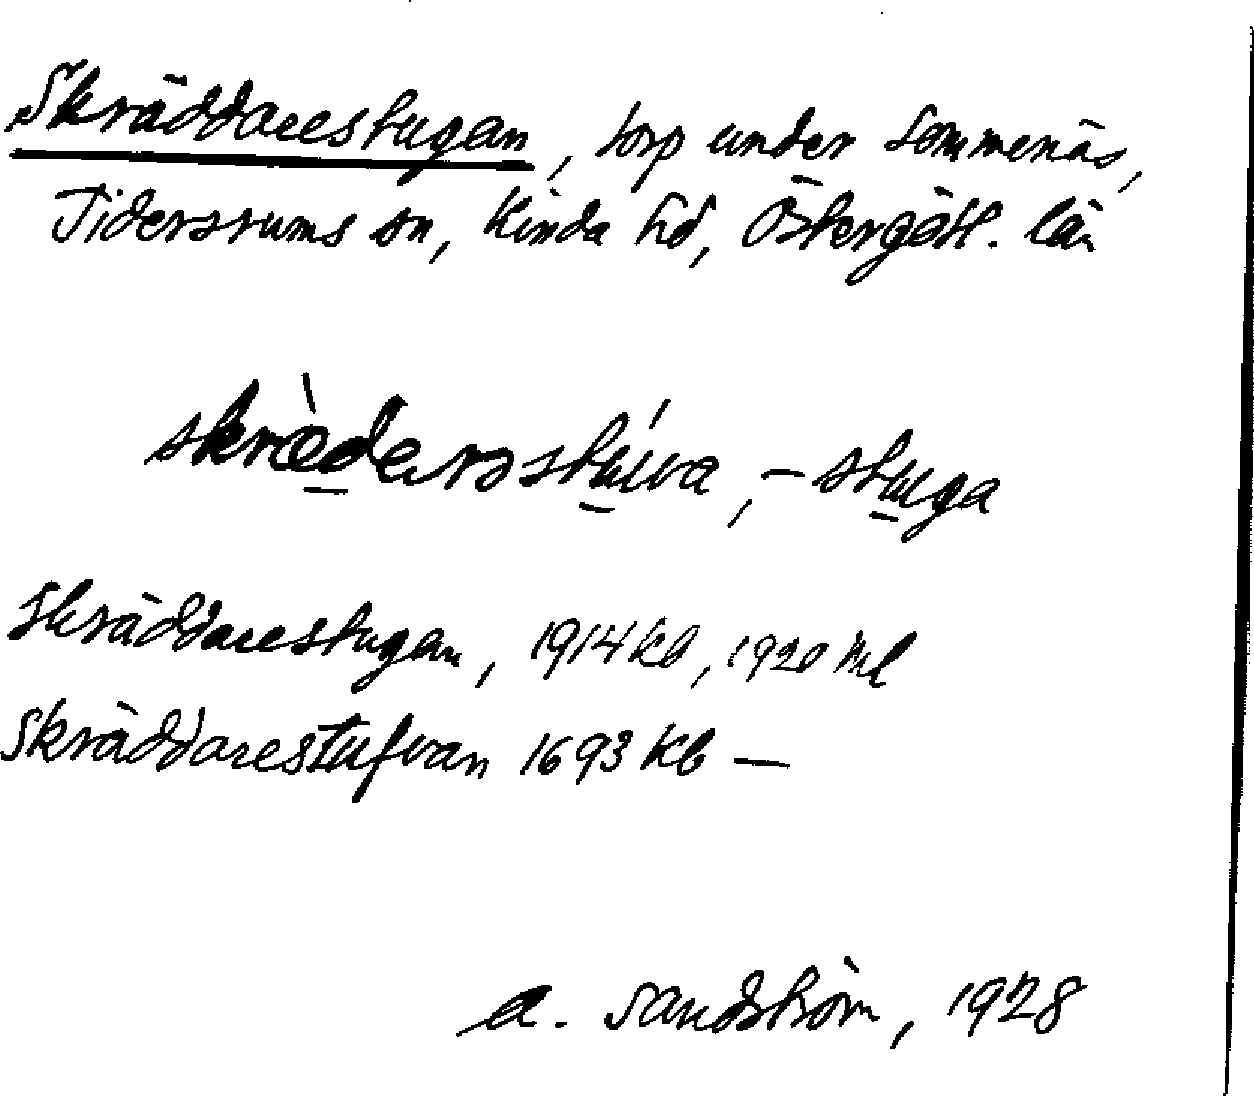 Skräddarestugan, torp under Sommenäs,
Tidersrums sn, Kinda hd, Östergötl. län
skræ̀darəstúva, -stuga
Skräddarestugan, 1914 kb, 1920 ml
Skräddarestufvan 1693 Kb —
A. Sandström, 1928